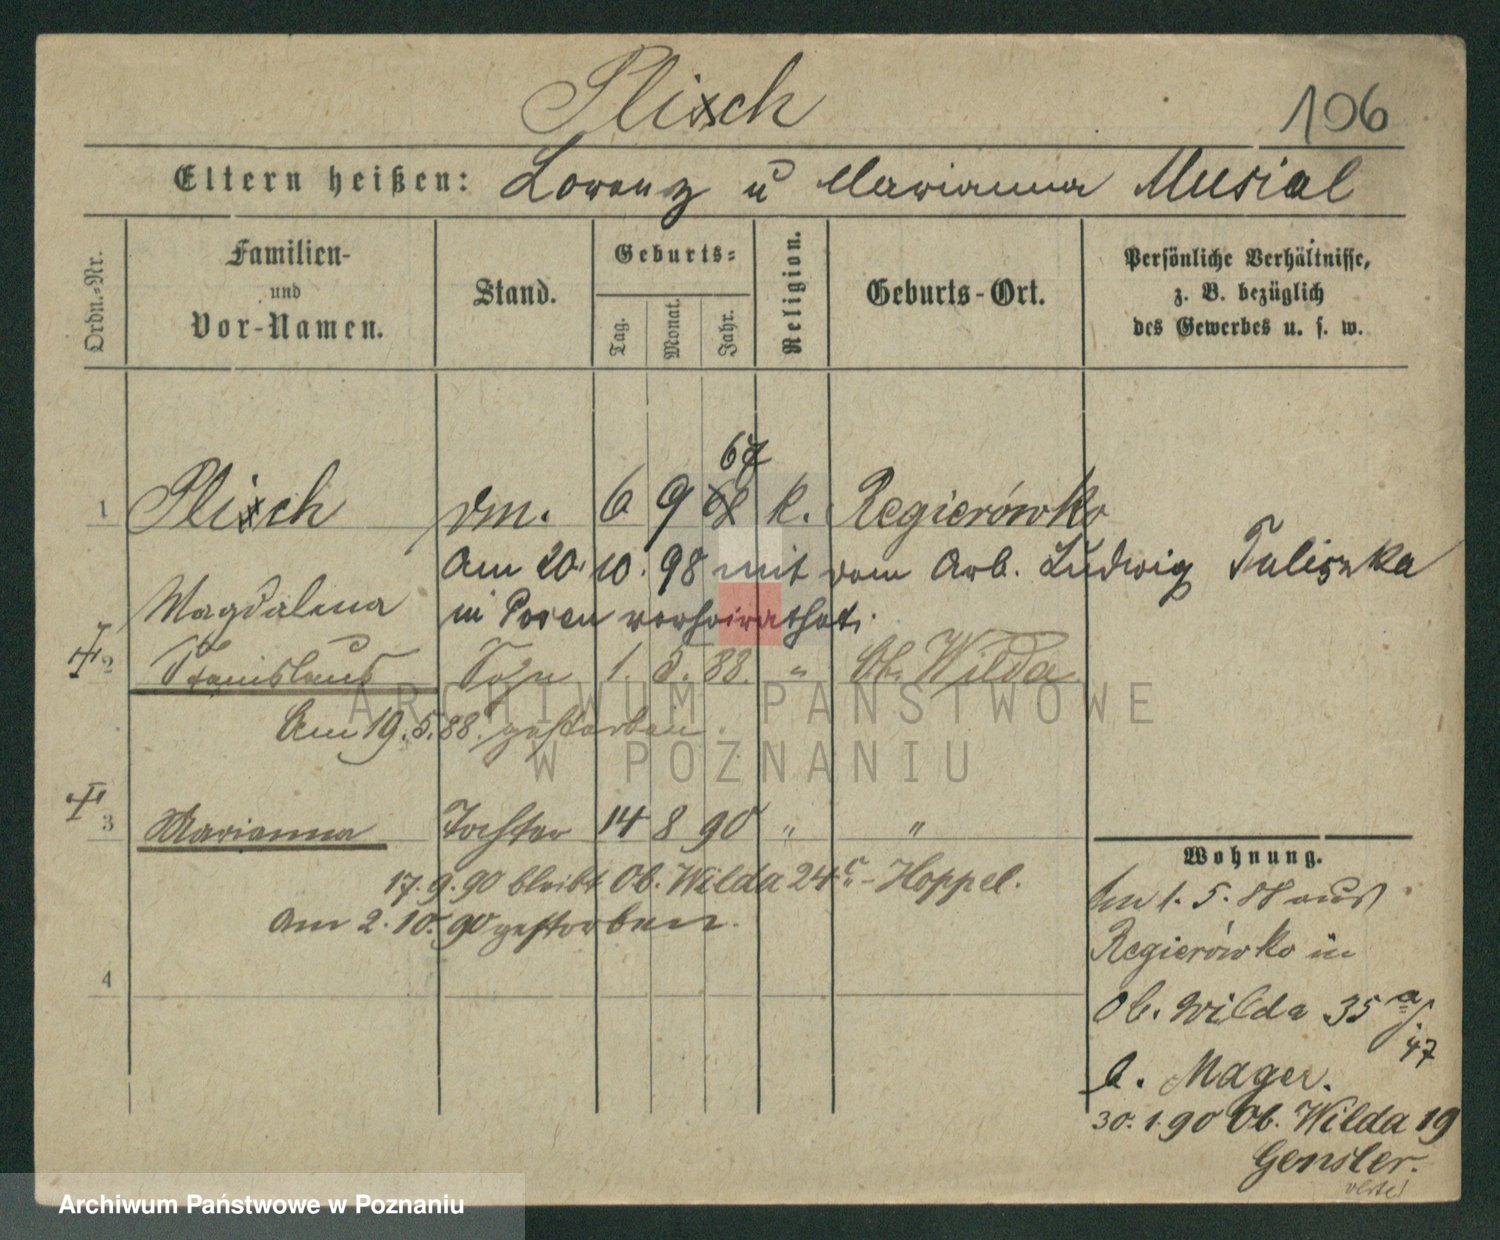 Plisch
106
Eltern heißen: Lorenz u Marianna Musial
Ordn.-Nr.
Familien- und Vor-Namen.
Stand.
Geburts-
Tag.
Monat.
Jahr.
Religion.
Geburts-Ort.
Persönliche Verhältnisse,
z. B. bezüglich
des Gewerbes u. s. w.
67
1 Plisch dm. 6 9 k. Regierówko
Am 20. 10. 98 mit dem Arb. Ludwig Taliszka
Magdalena in Posen verheirathet.
2 Stanislaus Sohn 1. 5. 88. " Ob. Wilda
Am 19. 5. 88. gestorben.
ARCHIWUM PAŃSTWOWE
W POZNANIU
3 Marianna Tochter 14 8 90 " "
17. 9. 90 bleibt Ob. Wilda 24 c - Hoppel.
Am 2. 10. 90 gestorben.
4
Wohnung.
Am 1. 5. 88 aus
Regierówko in
Ob. Wilda 35 a
47
b. Mager.
30. 1. 90 Ob. Wilda 19
Gensler.
Archiwum Państwowe w Poznaniu